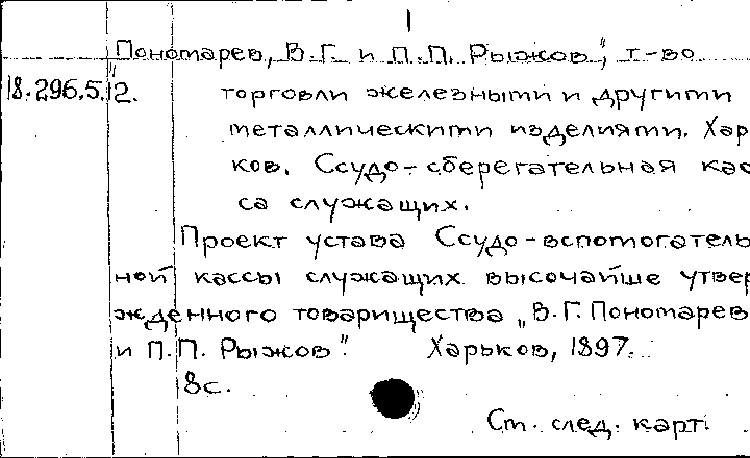 1
„Пономарев, В.Г. и П.П. Рыжов", т-во
18.296.5.12. торговли железными и другими
металлическими изделиями. Харь
ков. Ссудо-сберегательная кас
са служащих.
Проект устава Ссудо-вспомогатель
ной кассы служащих высочайше утвер
жденного товарищества „В.Г. Пономарев
и П.П. Рыжов". Харьков, 1897.
8с.
Ст. след. карт.